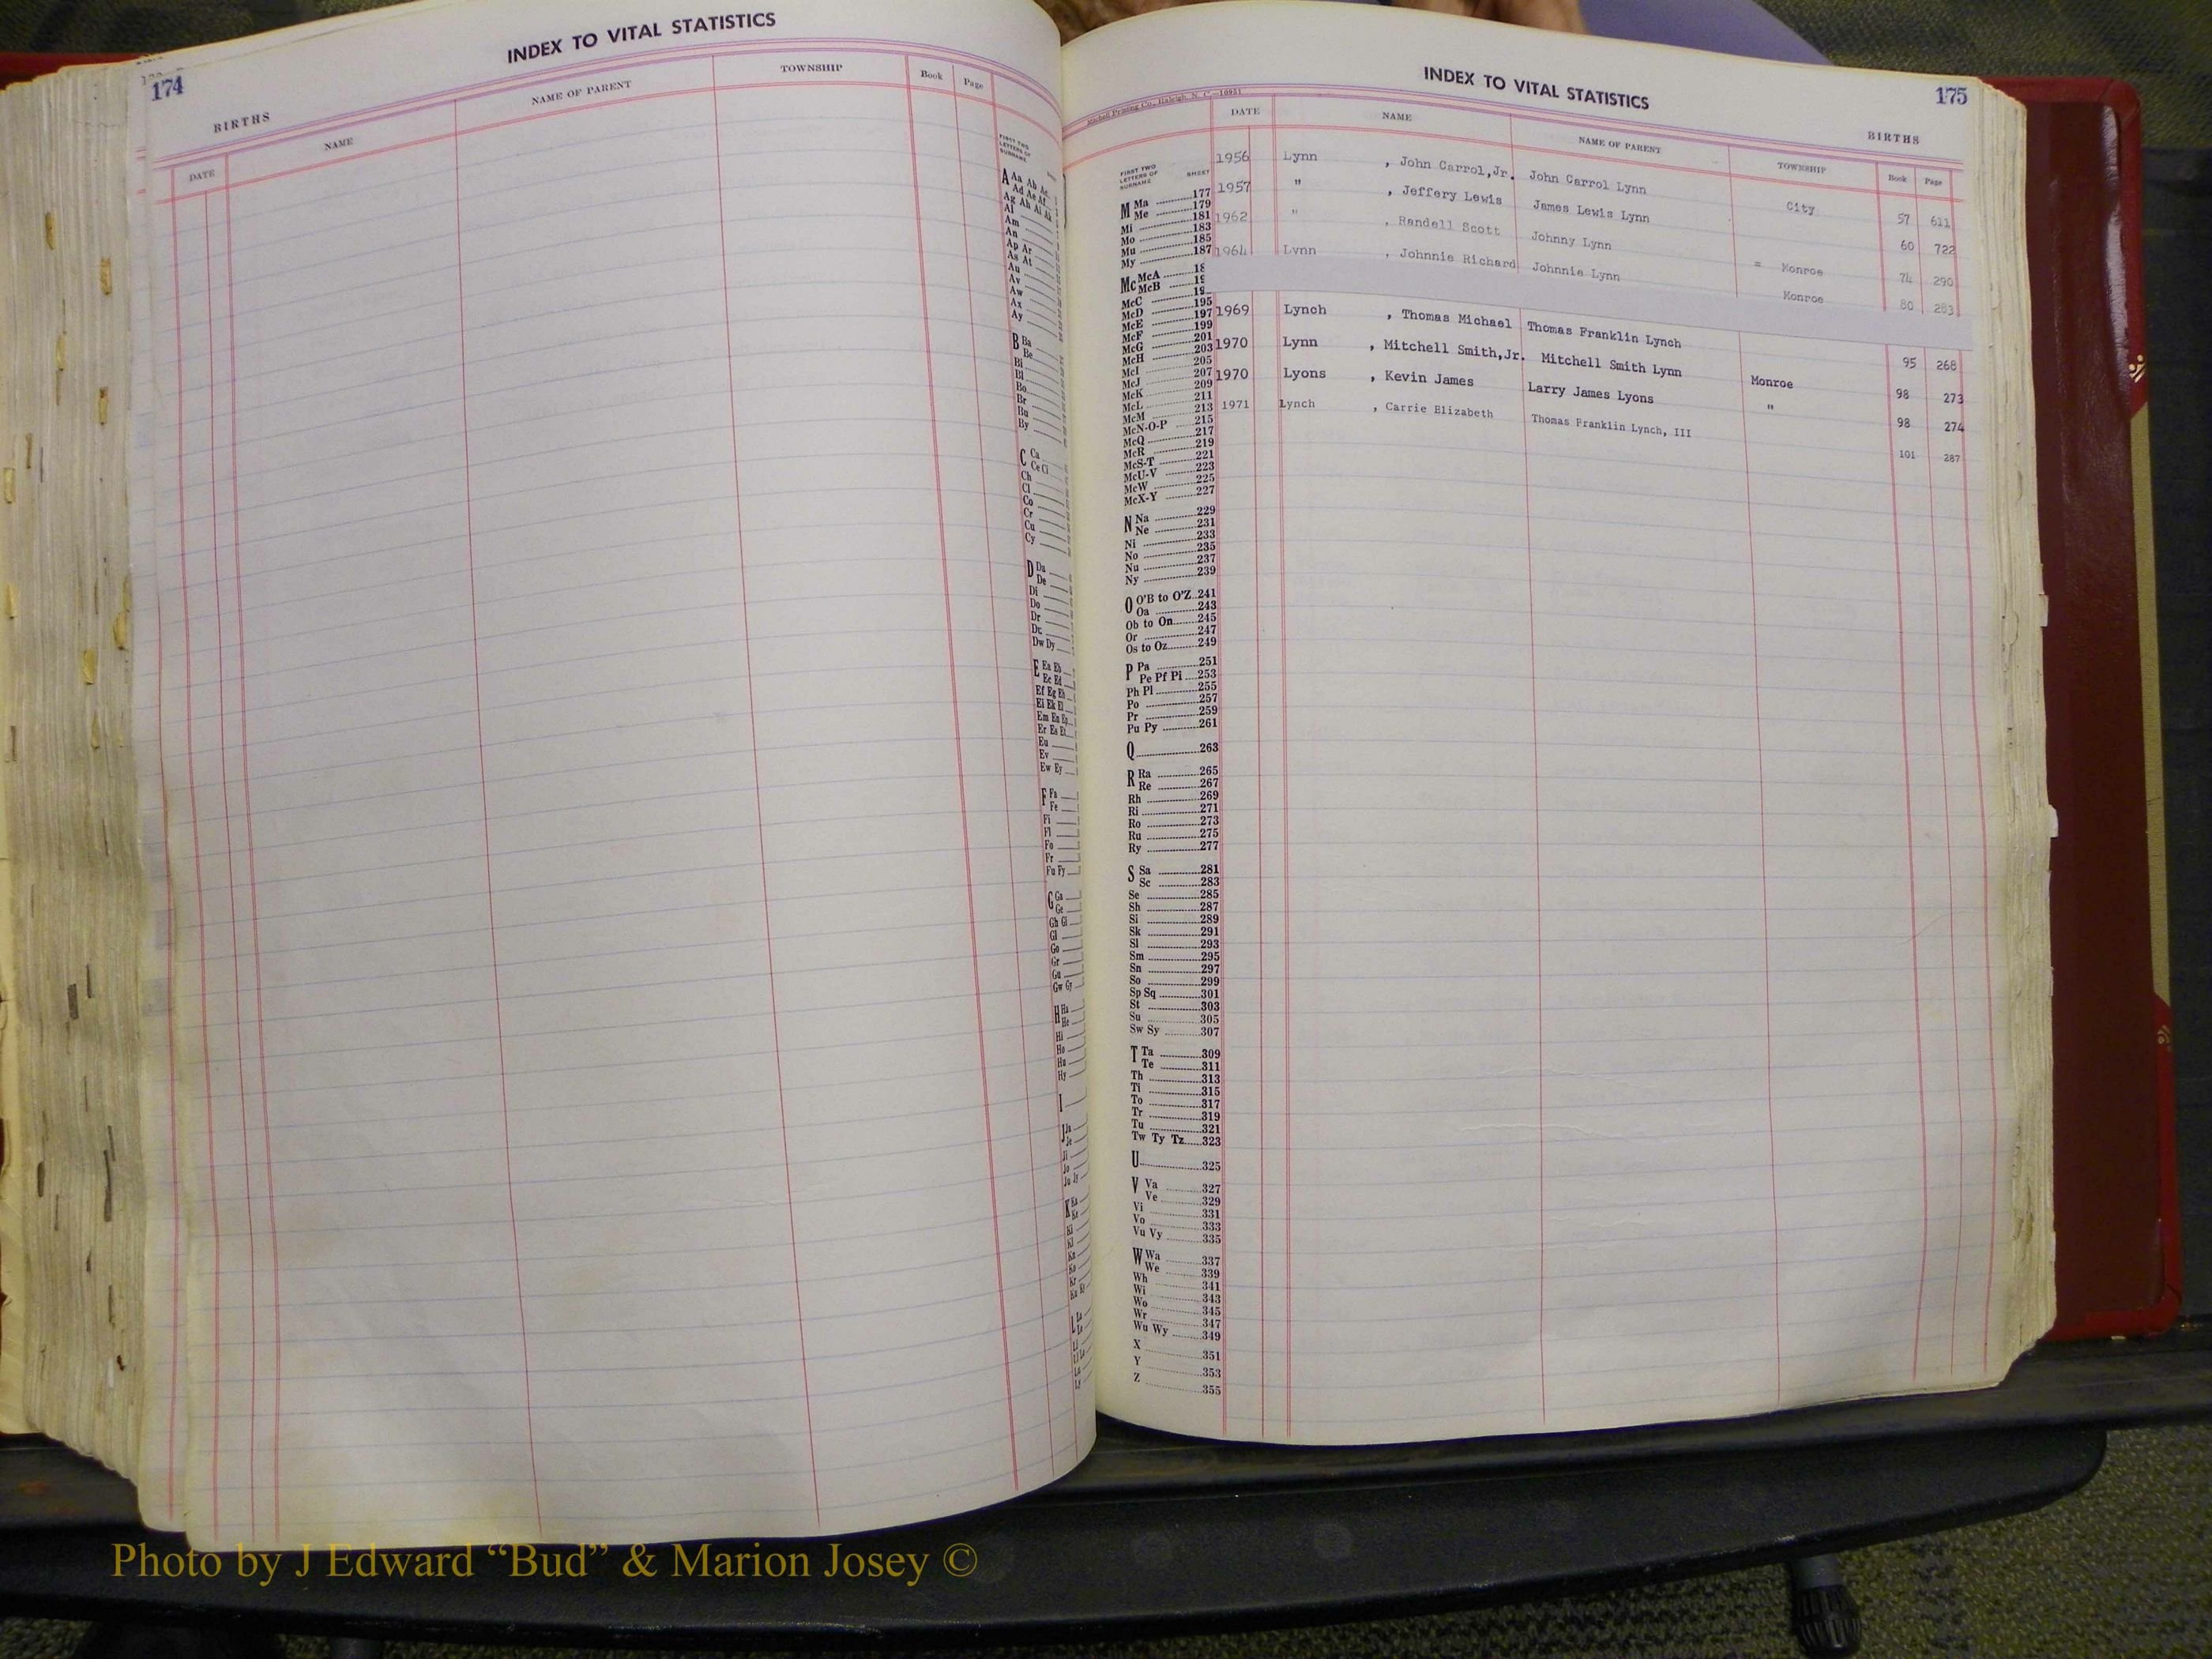 174
INDEX TO VITAL STATISTICS
BIRTHS
DATE NAME NAME OF PARENT TOWNSHIP Book Page
FIRST TWO
LETTERS OF
SURNAME
A Aa Ab Ac
Ad Ae Af
Ag Ah Ai Ak
Al
Am
An
Ap Ar
As At
Au
Av
Aw
Ax
Ay
B Ba
Be
Bi
Bl
Bo
Br
Bu
By
C Ca
Ce Ci
Ch
Cl
Co
Cr
Cu
Cy
D Da
De
Di
Do
Dr
Du
Dw Dy
E Ea Eb
Ec Ed
Ef Eg Eh
Ei Ek El
Em En Ep
Er Es Et
Eu
Ev
Ew Ey
F Fa
Fe
Fi
Fl
Fo
Fr
Fu Fy
G Ga
Ge
Gh Gi
Gl
Go
Gr
Gu
Gw Gy
H Ha
He
Hi
Ho
Hu
Hy
I
J Ja
Je
Ji
Jo
Ju Jy
K Ka
Ke
Ki
Kl
Kn
Ko
Kr
L La
Le
175
INDEX TO VITAL STATISTICS
Mitchell Printing Co., Raleigh, N. C.—10951
BIRTHS
DATE NAME NAME OF PARENT TOWNSHIP Book Page
1956 Lynn , John Carrol,Jr. John Carrol Lynn City 57 611
1957 " , Jeffery Lewis James Lewis Lynn 60 722
1962 " , Randell Scott Johnny Lynn = Monroe 74 290
1964 Lynn , Johnnie Richard Johnnie Lynn Monroe 80 283
1969 Lynch , Thomas Michael Thomas Franklin Lynch 95 268
1970 Lynn , Mitchell Smith,Jr. Mitchell Smith Lynn Monroe 98 273
1970 Lyons , Kevin James Larry James Lyons " 98 274
1971 Lynch , Carrie Elizabeth Thomas Franklin Lynch, III 101 287
FIRST TWO
LETTERS OF
SURNAME SHEET
M Ma 177
Me 179
Mi 181
Mo 183
Mu 185
My 187
Mc McA
McB
McC 195
McD 197
McE 199
McF 201
McG 203
McH 205
McI 207
McJ 209
McK 211
McL 213
McM 215
McN-O-P 217
McQ 219
McR 221
McS-T 223
McU-V 225
McW 227
McX-Y
N Na 229
Ne 231
Ni 233
No 235
Nu 237
Ny 239
O O'B to O'Z 241
Oa 243
Ob to On 245
Or 247
Os to Oz 249
P Pa 251
Pe Pf Pi 253
Ph Pl 255
Po 257
Pr 259
Pu Py 261
Q 263
R Ra 265
Re 267
Rh 269
Ri 271
Ro 273
Ru 275
Ry 277
S Sa 281
Sc 283
Se 285
Sh 287
Si 289
Sk 291
Sl 293
Sm 295
Sn 297
So 299
Sp Sq 301
St 303
Su 305
Sw Sy 307
T Ta 309
Te 311
Th 313
Ti 315
To 317
Tr 319
Tu 321
Tw Ty Tz 323
U 325
V Va 327
Ve 329
Vi 331
Vo 333
Vu Vy 335
W Wa 337
We 339
Wh 341
Wi 343
Wo 345
Wr 347
Wu Wy 349
X 351
Y 353
Z 355
Photo by J Edward “Bud” & Marion Josey ©